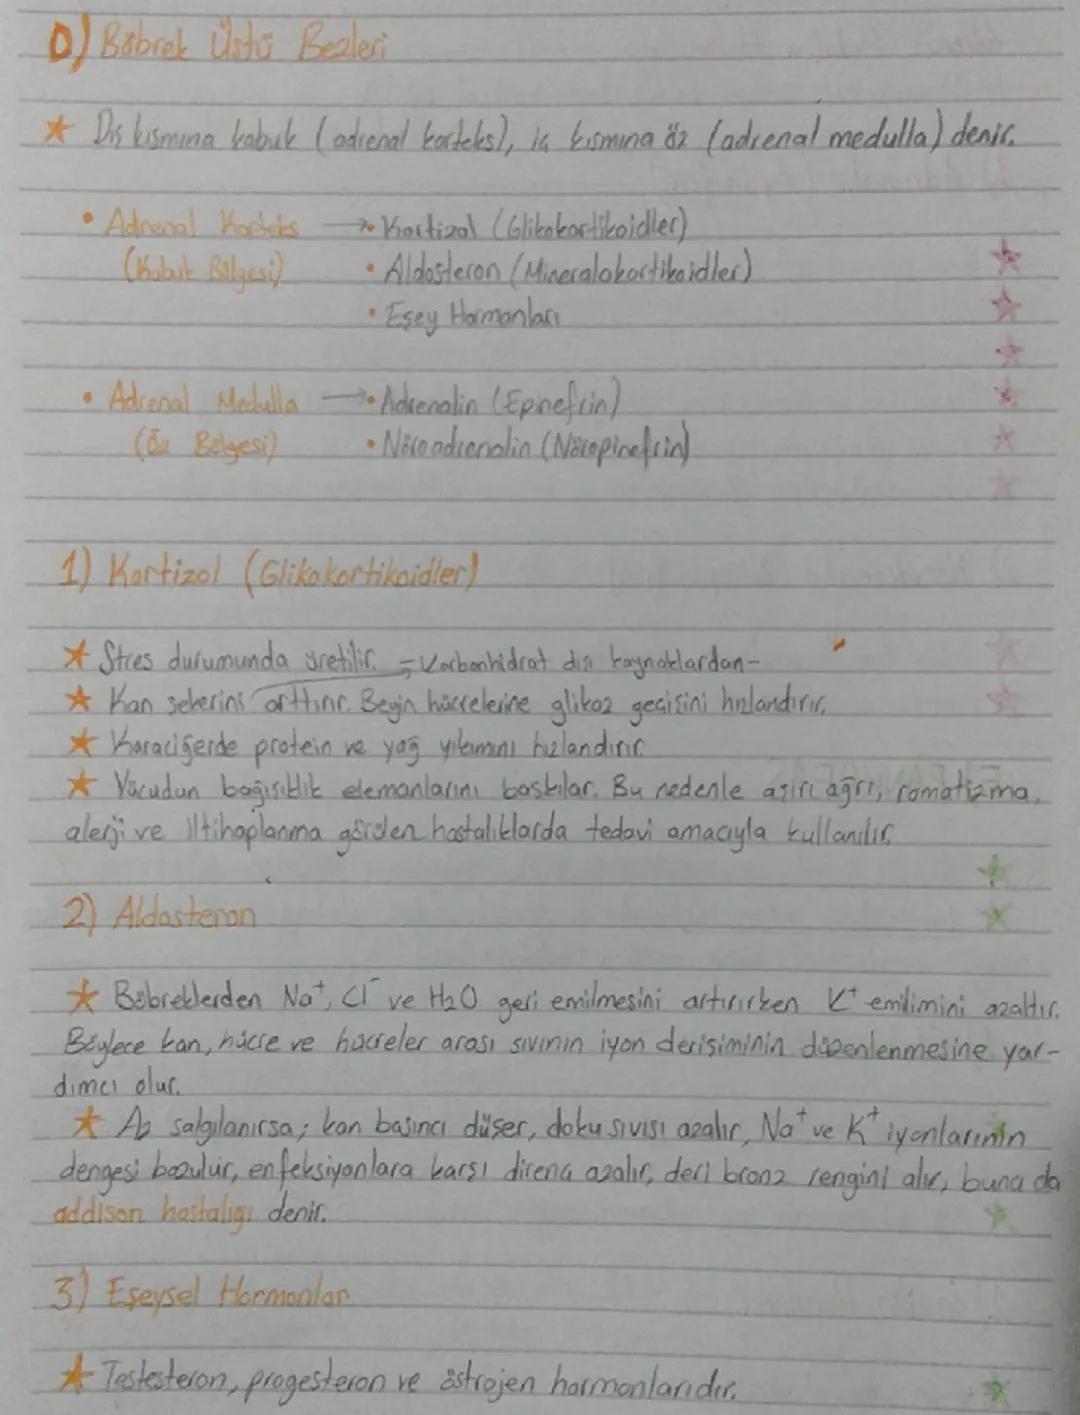 D) Böbrek Üstü Bezleri
★ Dış kısmına kabuk (adrenal korteks), iç kısmına öz (adrenal medulla) denir.
• Adrenal Korteks → • Kortizol (Glikokortikoidler)
(Kabuk Bölgesi) • Aldosteron (Mineralokortikoidler)
• Eşey Hormonları
• Adrenal Medulla → • Adrenalin (Epinefrin)
(Öz Bölgesi) • Nöroadrenalin (Nöropinefrin)
1) Kortizol (Glikokortikoidler)
★ Stres durumunda üretilir. Karbonhidrat dışı kaynaklardan-
★ Kan şekerini arttırır. Beyin hücrelerine glikoz geçişini hızlandırır.
★ Karaciğerde protein ve yağ yıkımını hızlandırır.
★ Vücudun bağışıklık elemanlarını baskılar. Bu nedenle aşırı ağrı, romatizma,
alerji ve iltihaplanma görülen hastalıklarda tedavi amacıyla kullanılır.
2) Aldosteron
★ Böbreklerden Na⁺, Cl⁻ ve H₂O geri emilmesini artırırken K⁺ emilimini azaltır.
Böylece kan, hücre ve hücreler arası sıvının iyon derişiminin düzenlenmesine yar-
dımcı olur.
★ Az salgılanırsa; kan basıncı düşer, doku sıvısı azalır, Na⁺ ve K⁺ iyonlarının
dengesi bozulur, enfeksiyonlara karşı direnç azalır, deri bronz rengini alır, buna da
addison hastalığı denir.
3) Eşeysel Hormonlar
★ Testesteron, progesteron ve östrojen hormonlarıdır.